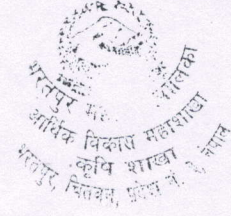 भरतपुर
आर्थिक विकास महाशाखा
कृषि शाखा
भरतपुर, चितवन, प्रदेश नं. ३, नेपाल